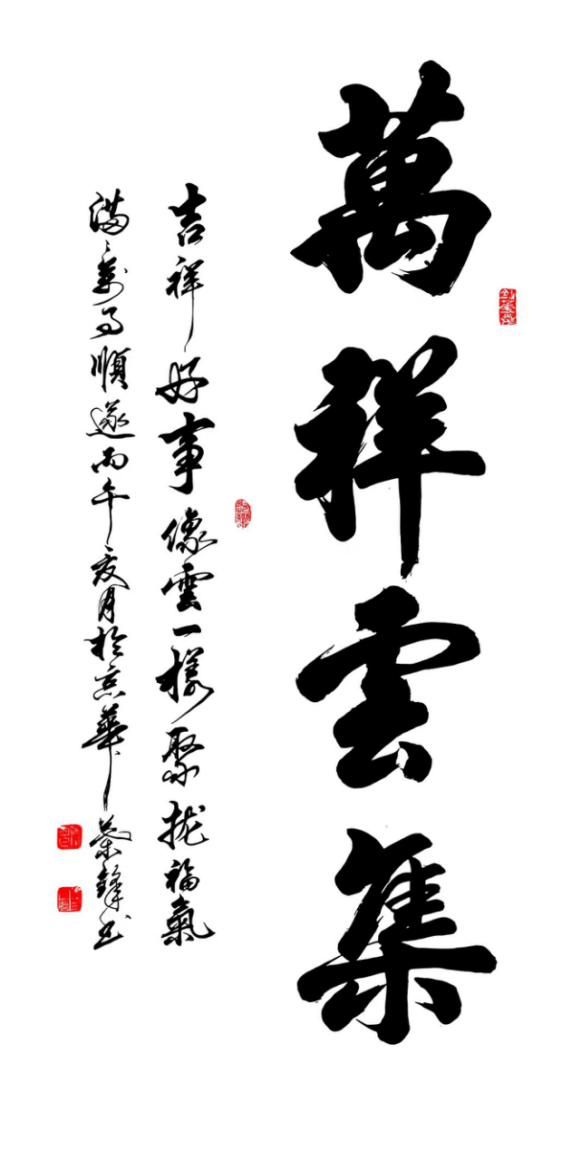 萬祥雲集
吉祥好事像雲一樣聚拢福氣
滿滿萬事順遂丙午夏月於京華荣鋒书